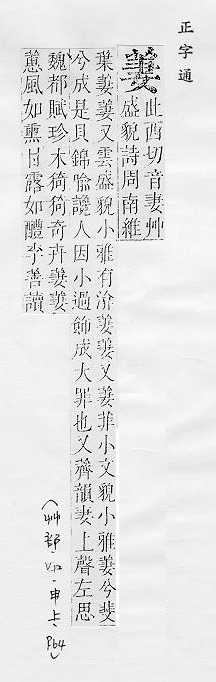 正字通
萋
此西切音妻艸
盛貌詩周南維
葉萋萋又雲盛貌小雅有渰萋萋又萋菲小文貌小雅萋兮斐
兮成是貝錦喻讒人因小過飾成大罪也又薺韻妻上聲左思
魏都賦珍木猗猗奇卉萋萋
蕙風如熏甘露如醴李善讀
(艸部· ·申上·P64)